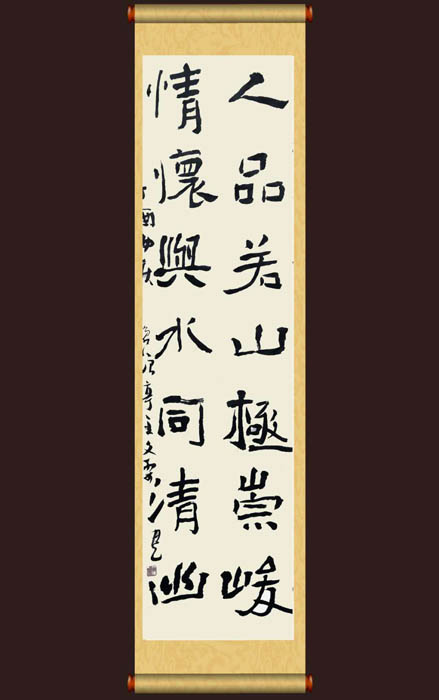 人品若山極崇峻
情懷與水同清幽
丁酉